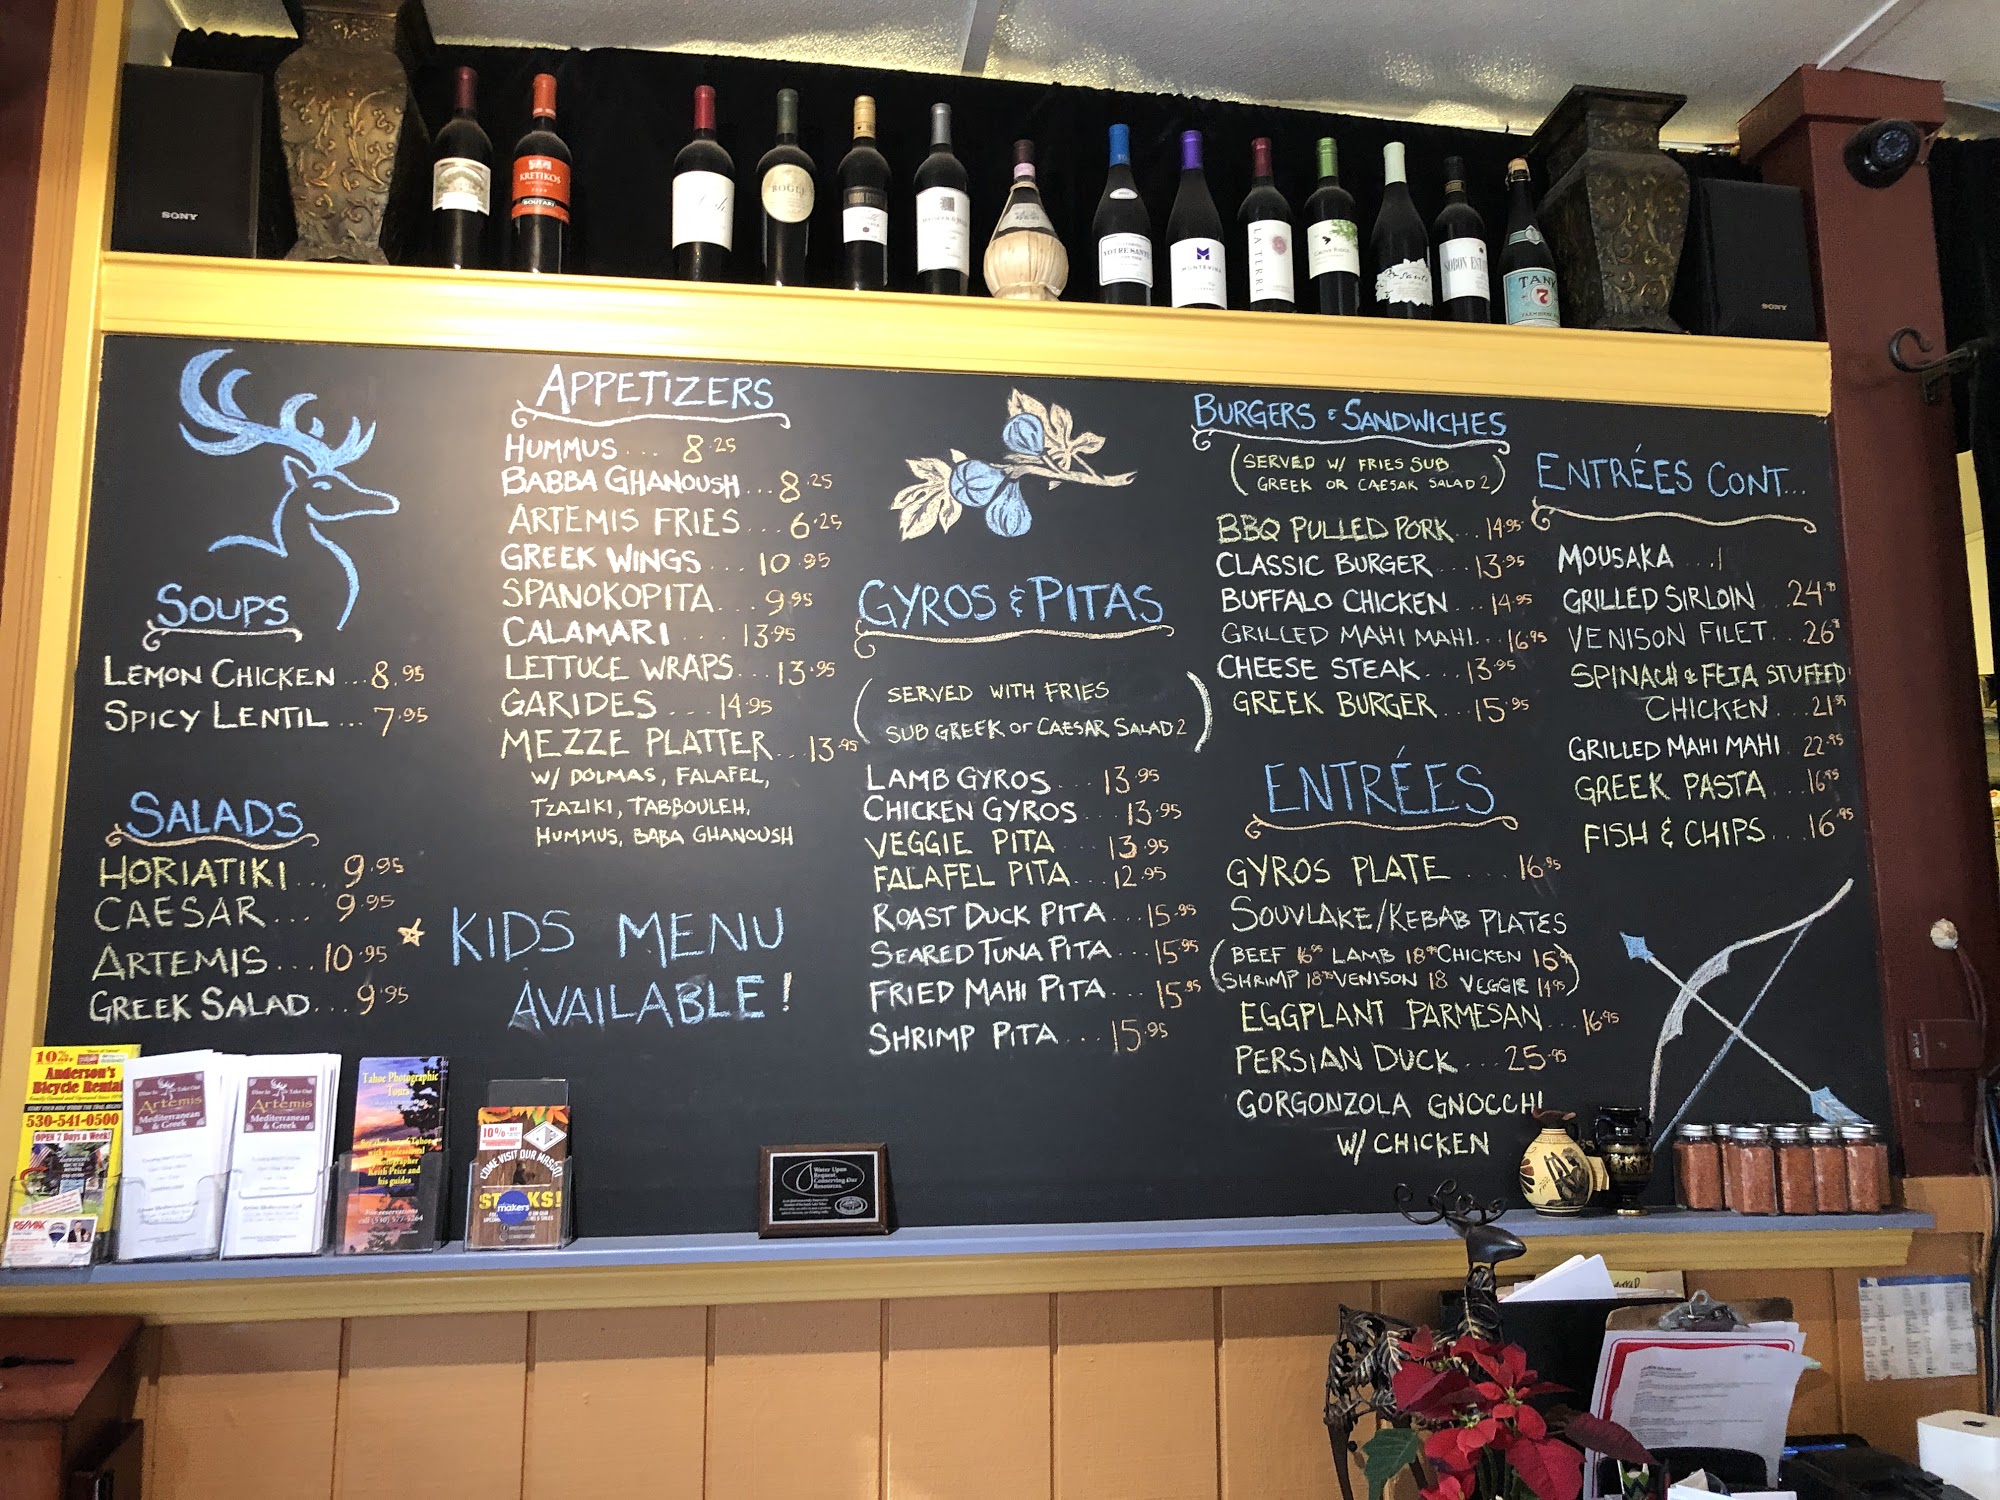 SONY
KRETIKOS
BOUTARI
LA TERRE
MONTEVINA
TANK
7
SONY
SOUPS
LEMON CHICKEN ... 8.95
SPICY LENTIL ... 7.95
SALADS
HORIATIKI ... 9.95
CAESAR ... 9.95
ARTEMIS ... 10.95
GREEK SALAD ... 9.95
APPETIZERS
HUMMUS ... 8.25
BABBA GHANOUSH ... 8.25
ARTEMIS FRIES ... 6.25
GREEK WINGS ... 10.95
SPANOKOPITA ... 9.95
CALAMARI ... 13.95
LETTUCE WRAPS ... 13.95
GARIDES ... 14.95
MEZZE PLATTER ... 13.95
W/ DOLMAS, FALAFEL,
TZAZIKI, TABBOULEH,
HUMMUS, BABA GHANOUSH
KIDS MENU
AVAILABLE!
GYROS & PITAS
(SERVED WITH FRIES
SUB GREEK or CAESAR SALAD 2)
LAMB GYROS ... 13.95
CHICKEN GYROS ... 13.95
VEGGIE PITA ... 13.95
FALAFEL PITA ... 12.95
ROAST DUCK PITA ... 15.95
SEARED TUNA PITA ... 15.95
FRIED MAHI PITA ... 15.95
SHRIMP PITA ... 15.95
BURGERS & SANDWICHES
(SERVED W/ FRIES SUB
GREEK OR CAESAR SALAD 2)
BBQ PULLED PORK ... 14.95
CLASSIC BURGER ... 13.95
BUFFALO CHICKEN ... 14.95
GRILLED MAHI MAHI ... 16.95
CHEESE STEAK ... 13.95
GREEK BURGER ... 15.95
ENTRÉES
GYROS PLATE .... 16.95
SOUVLAKE/KEBAB PLATES
(BEEF 16.95 LAMB 18.95 CHICKEN 16.95
SHRIMP 18.95 VENISON 18 VEGGIE 14.95)
EGGPLANT PARMESAN ... 16.95
PERSIAN DUCK ... 25.95
GORGONZOLA GNOCCHI
W/ CHICKEN
ENTRÉES CONT...
MOUSAKA ...
GRILLED SIRLOIN ... 24
VENISON FILET ... 26
SPINACH & FETA STUFFED
CHICKEN ... 21.95
GRILLED MAHI MAHI . 22.95
GREEK PASTA ... 16.95
FISH & CHIPS ... 16.95
10% OFF
Anderson's
Bicycle Rental
530-541-0500
OPEN 7 Days a Week!
RE/MAX
Dine In & Take Out
Artemis
Mediterranean
& Greek
Dine In & Take Out
Artemis
Mediterranean
& Greek
Tahoe Photographic
Tours
with professional
photographer
Keith Price and
his guides
For reservations
call (530) 577-5264
10%
COME VISIT OUR MASCOT
makers
Water Upon
Request.
Conserving Our
Resources.